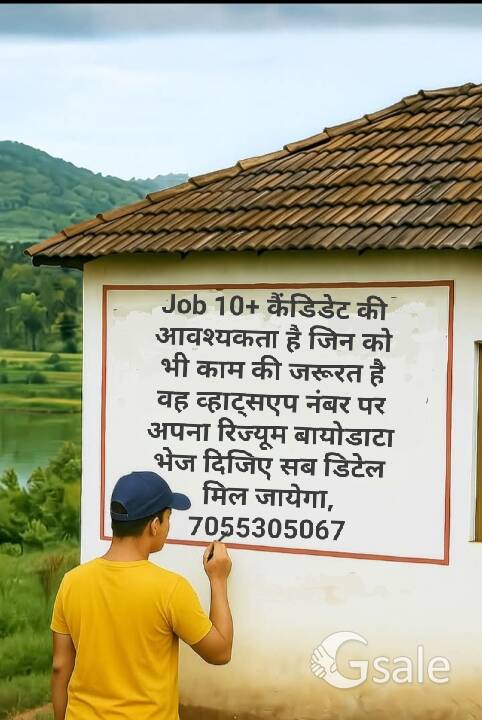 Job 10+ कैंडिडेट की
आवश्यकता है जिन को
भी काम की जरूरत है
वह व्हाट्सएप नंबर पर
अपना रिज्यूम बायोडाटा
भेज दिजिए सब डिटेल
मिल जायेगा,
7055305067
Gsale